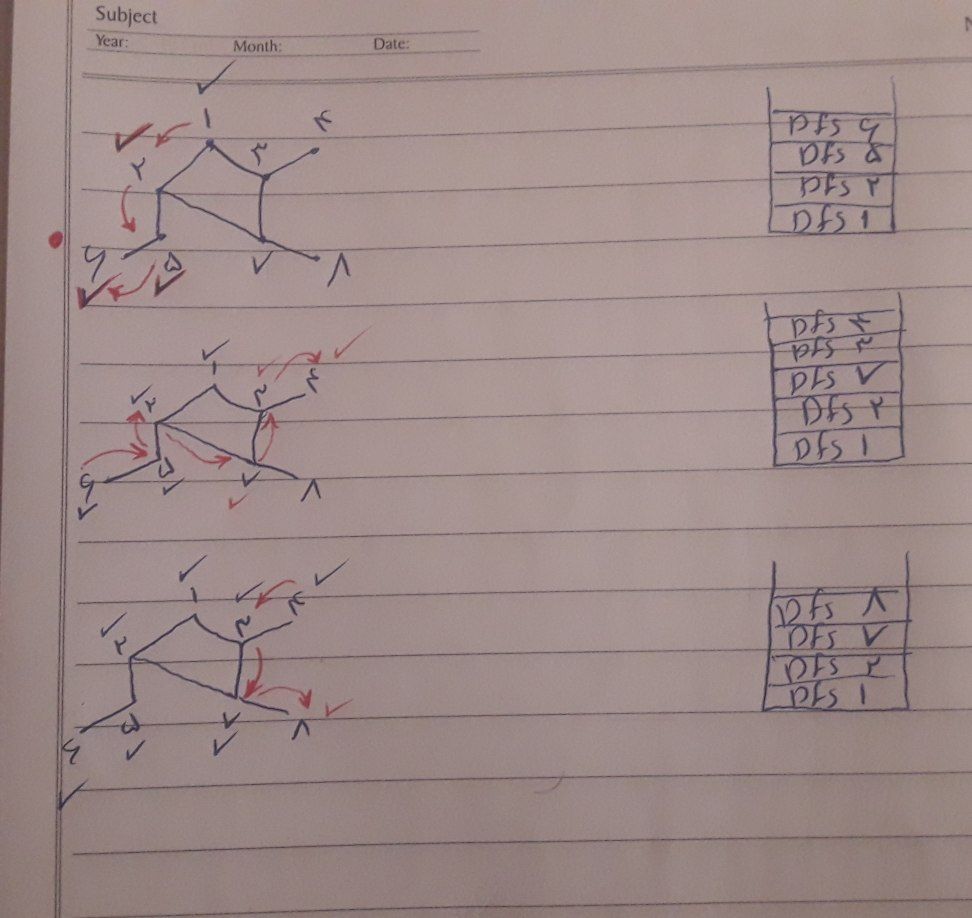 Subject
Year: Month: Date:
۱ ۴
۲ ۳
۶ ۵ ۷ ۸
Dfs ۶
Dfs ۵
Dfs ۲
Dfs ۱
۱
۲ ۳ ۴
۶ ۵ ۷ ۸
Dfs ۴
Dfs ۳
Dfs ۷
Dfs ۲
Dfs ۱
۱
۲ ۳ ۴
۶ ۵ ۷ ۸
Dfs ۸
Dfs ۷
Dfs ۲
Dfs ۱